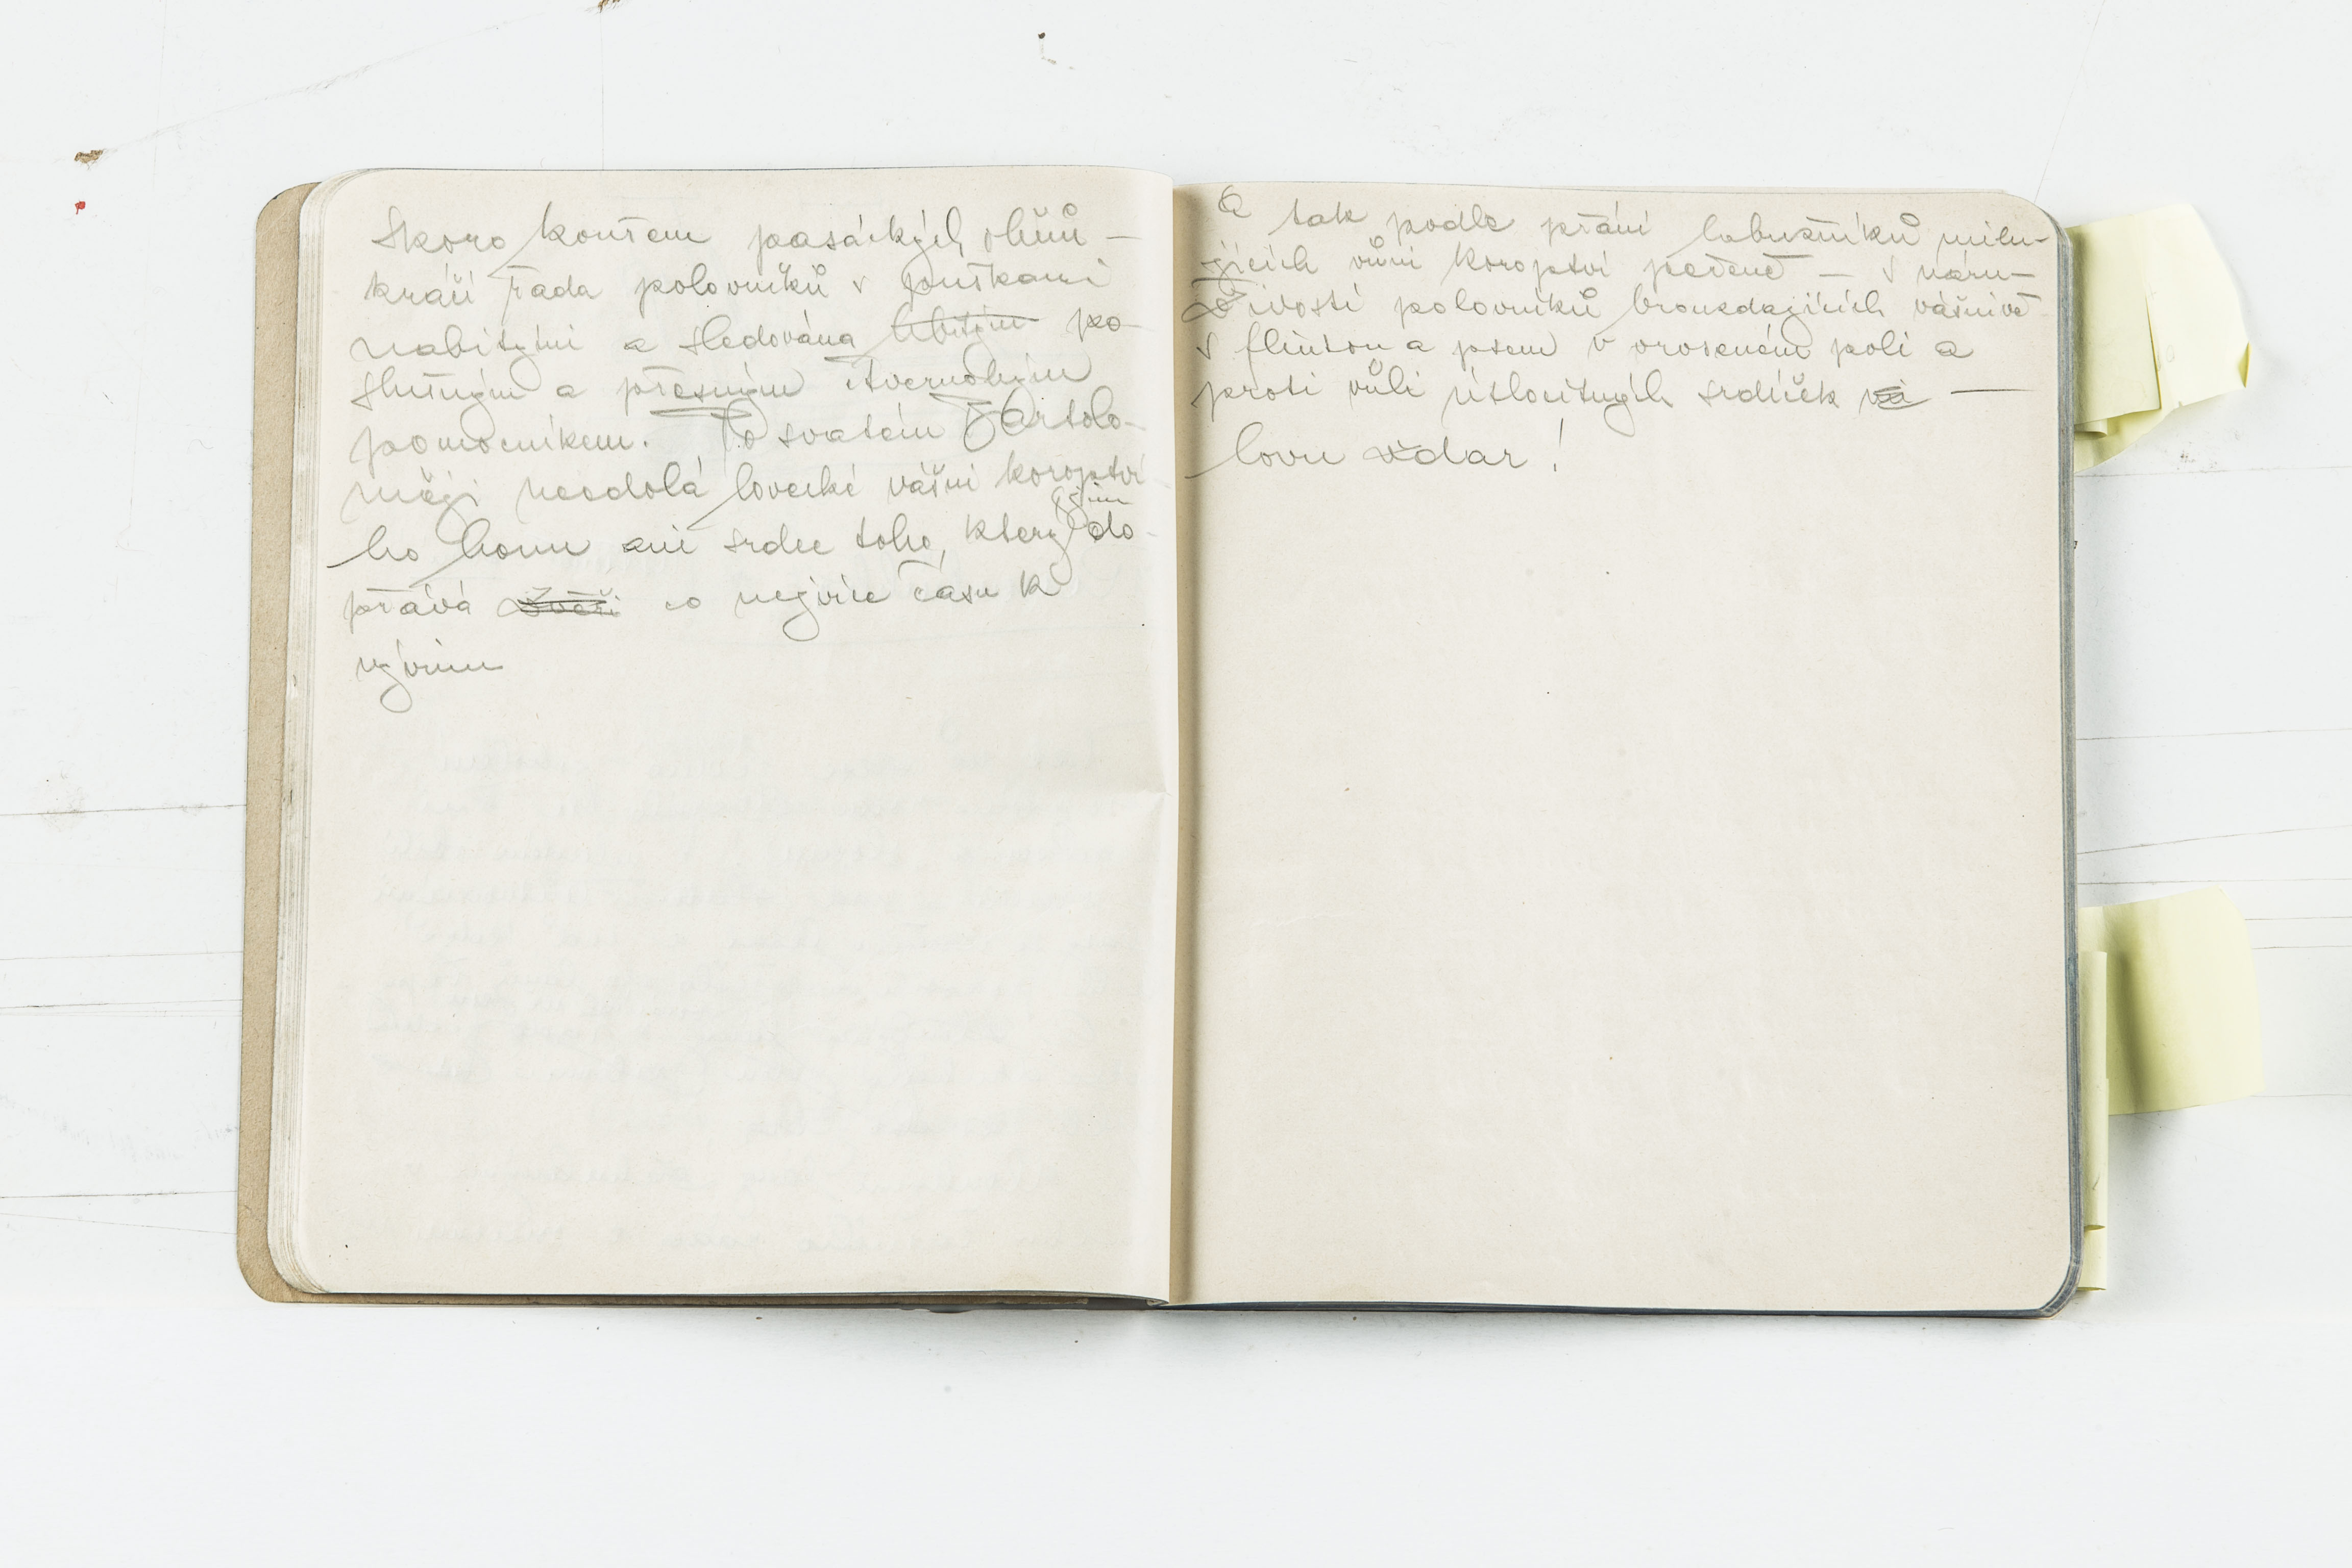 Skoro kouřem pasáckých ohňů –
kráčí řada polovníků s puškami
nabitými a sledována po-
slušným a přesným čtvernohým
pomocníkem. Po svatém Bartolo-
měji neodolá lovecké vášni koroptví-
ho honu ani srdce toho, který jim do-
přává zvěři co nejvíce času k
vývinu
A tak podle přání labužníků milu-
jících vůni koroptví pečeně – s náru-
živostí polovníků brouzdajících vášnivě
s flintou a psem v oroseném poli a
proti vůli útlocitných srdíček –
lovu zdar!